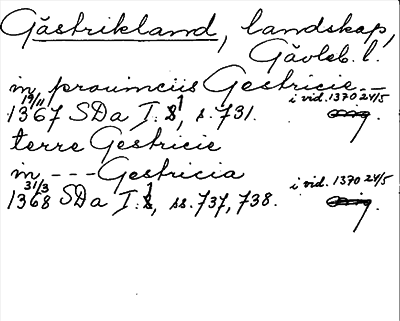 Gästrikland, landskap,
Gävleb. l.
in prouinciis Gestricie --
1367 19/11 SDa I:1, s. 731. i vid. 1370 24/5
terre Gestricie
in --- Gestricia
1368 31/3 SDa I:1, ss. 737, 738. i vid. 1370 24/5